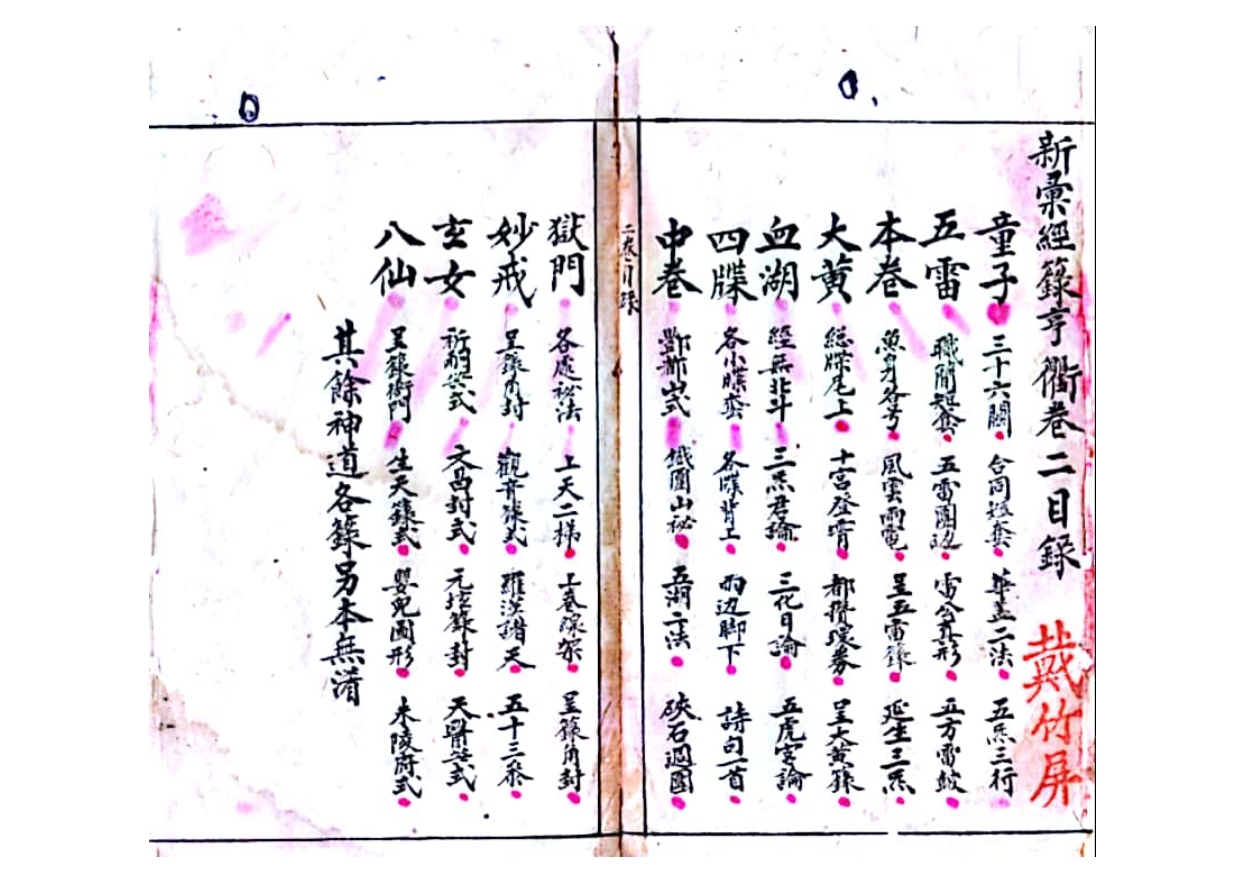 新彙經籙亨衢卷二目錄 戴竹屏
童子 三十六關 合同短套 華盖二法 五炁三行
五雷 職開短套 五雷圍边 雷公真形 五方雷皷
本卷 魚身各号 風雲雨電 呈五雷籙 延生三炁
大黄 総牒尾上 十宮登霄 都攢環券 呈大黄籙
血湖 經無北斗 三炁君論 三化日論 五虎宮論
四牒 各小牒套 各牒背上 兩边脚下 詩句一首
中卷 酆都山式 鐵圍山秘 五湖二法 硤石週圍
二卷目錄
獄門 各處秘法 上天二梯 上卷 呈籙角封
妙戒 呈籙角封 觀音籙式 羅漢諸天 五十三叅
玄女 祈嗣笑式 文昌封式 元垓籙封 天醫笑式
八仙 呈籙衙門 生天籙式 嬰兒圖形 木陵府式
其餘神道各籙另本無淆